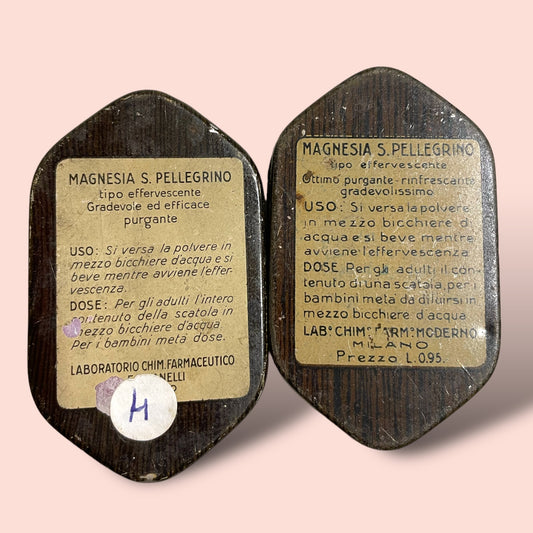 MAGNESIA S. PELLEGRINO
tipo effervescente
Gradevole ed efficace
purgante
USO: Si versa la polvere in
mezzo bicchiere d'acqua e si
beve mentre avviene l'effer-
vescenza.
DOSE: Per gli adulti l'intero
contenuto della scatola in
mezzo bicchiere d'acqua
Per i bambini metà dose.
LABORATORIO CHIM. FARMACEUTICO
H
MAGNESIA S. PELLEGRINO
tipo effervescente
Ottimo purgante-rinfrescante
gradevolissimo
USO: Si versa la polvere
in mezzo bicchiere d'
acqua e si beve mentre
avviene l'effervescenza.
DOSE Per gli adulti il con-
tenuto di una scatola, per i
bambini metà da diluirsi in
mezzo bicchiere d'acqua
LAB° CHIM° FARM° MODERNO
MILANO
Prezzo L. 0.95.